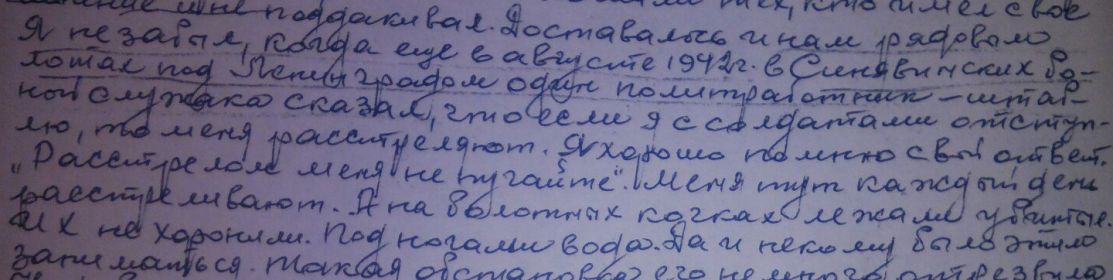 не поддакивал. Доставалось и нам рядовым
Я не забыл, когда еще в августе 1942г. в Синявинских бо-
лотах под Ленинградом один политработник – штаб-
ной служака сказал, что если я с солдатами отступ-
лю, то меня расстреляют. Я хорошо помню свой ответ.
„Расстрелом меня не пугайте". Меня тут каждый день
расстреливают. А на болотных кочках лежали убитые.
Их не хоронили. Под ногами вода. Да и некому было этим
заниматься. Такая обстановка его немного отрезвила